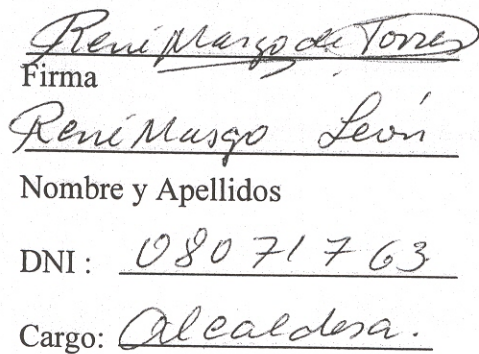 René Masgo de Torres
Firma
René Masgo León
Nombre y Apellidos
DNI : 08071763
Cargo: Alcaldesa.